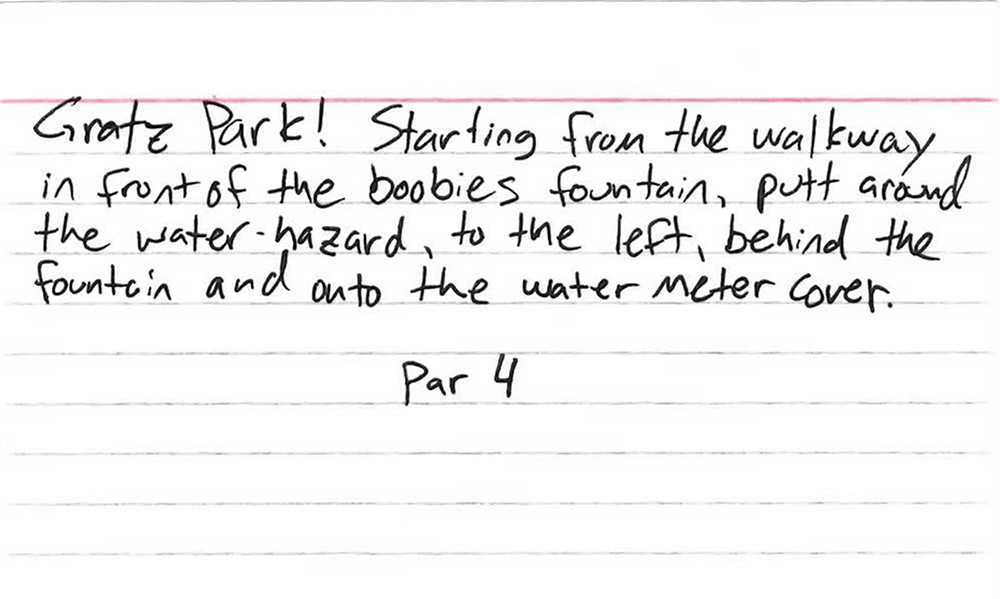 Gratz Park! Starting from the walkway
in front of the boobies fountain, putt around
the water-hazard, to the left, behind the
fountain and onto the water meter cover.
Par 4